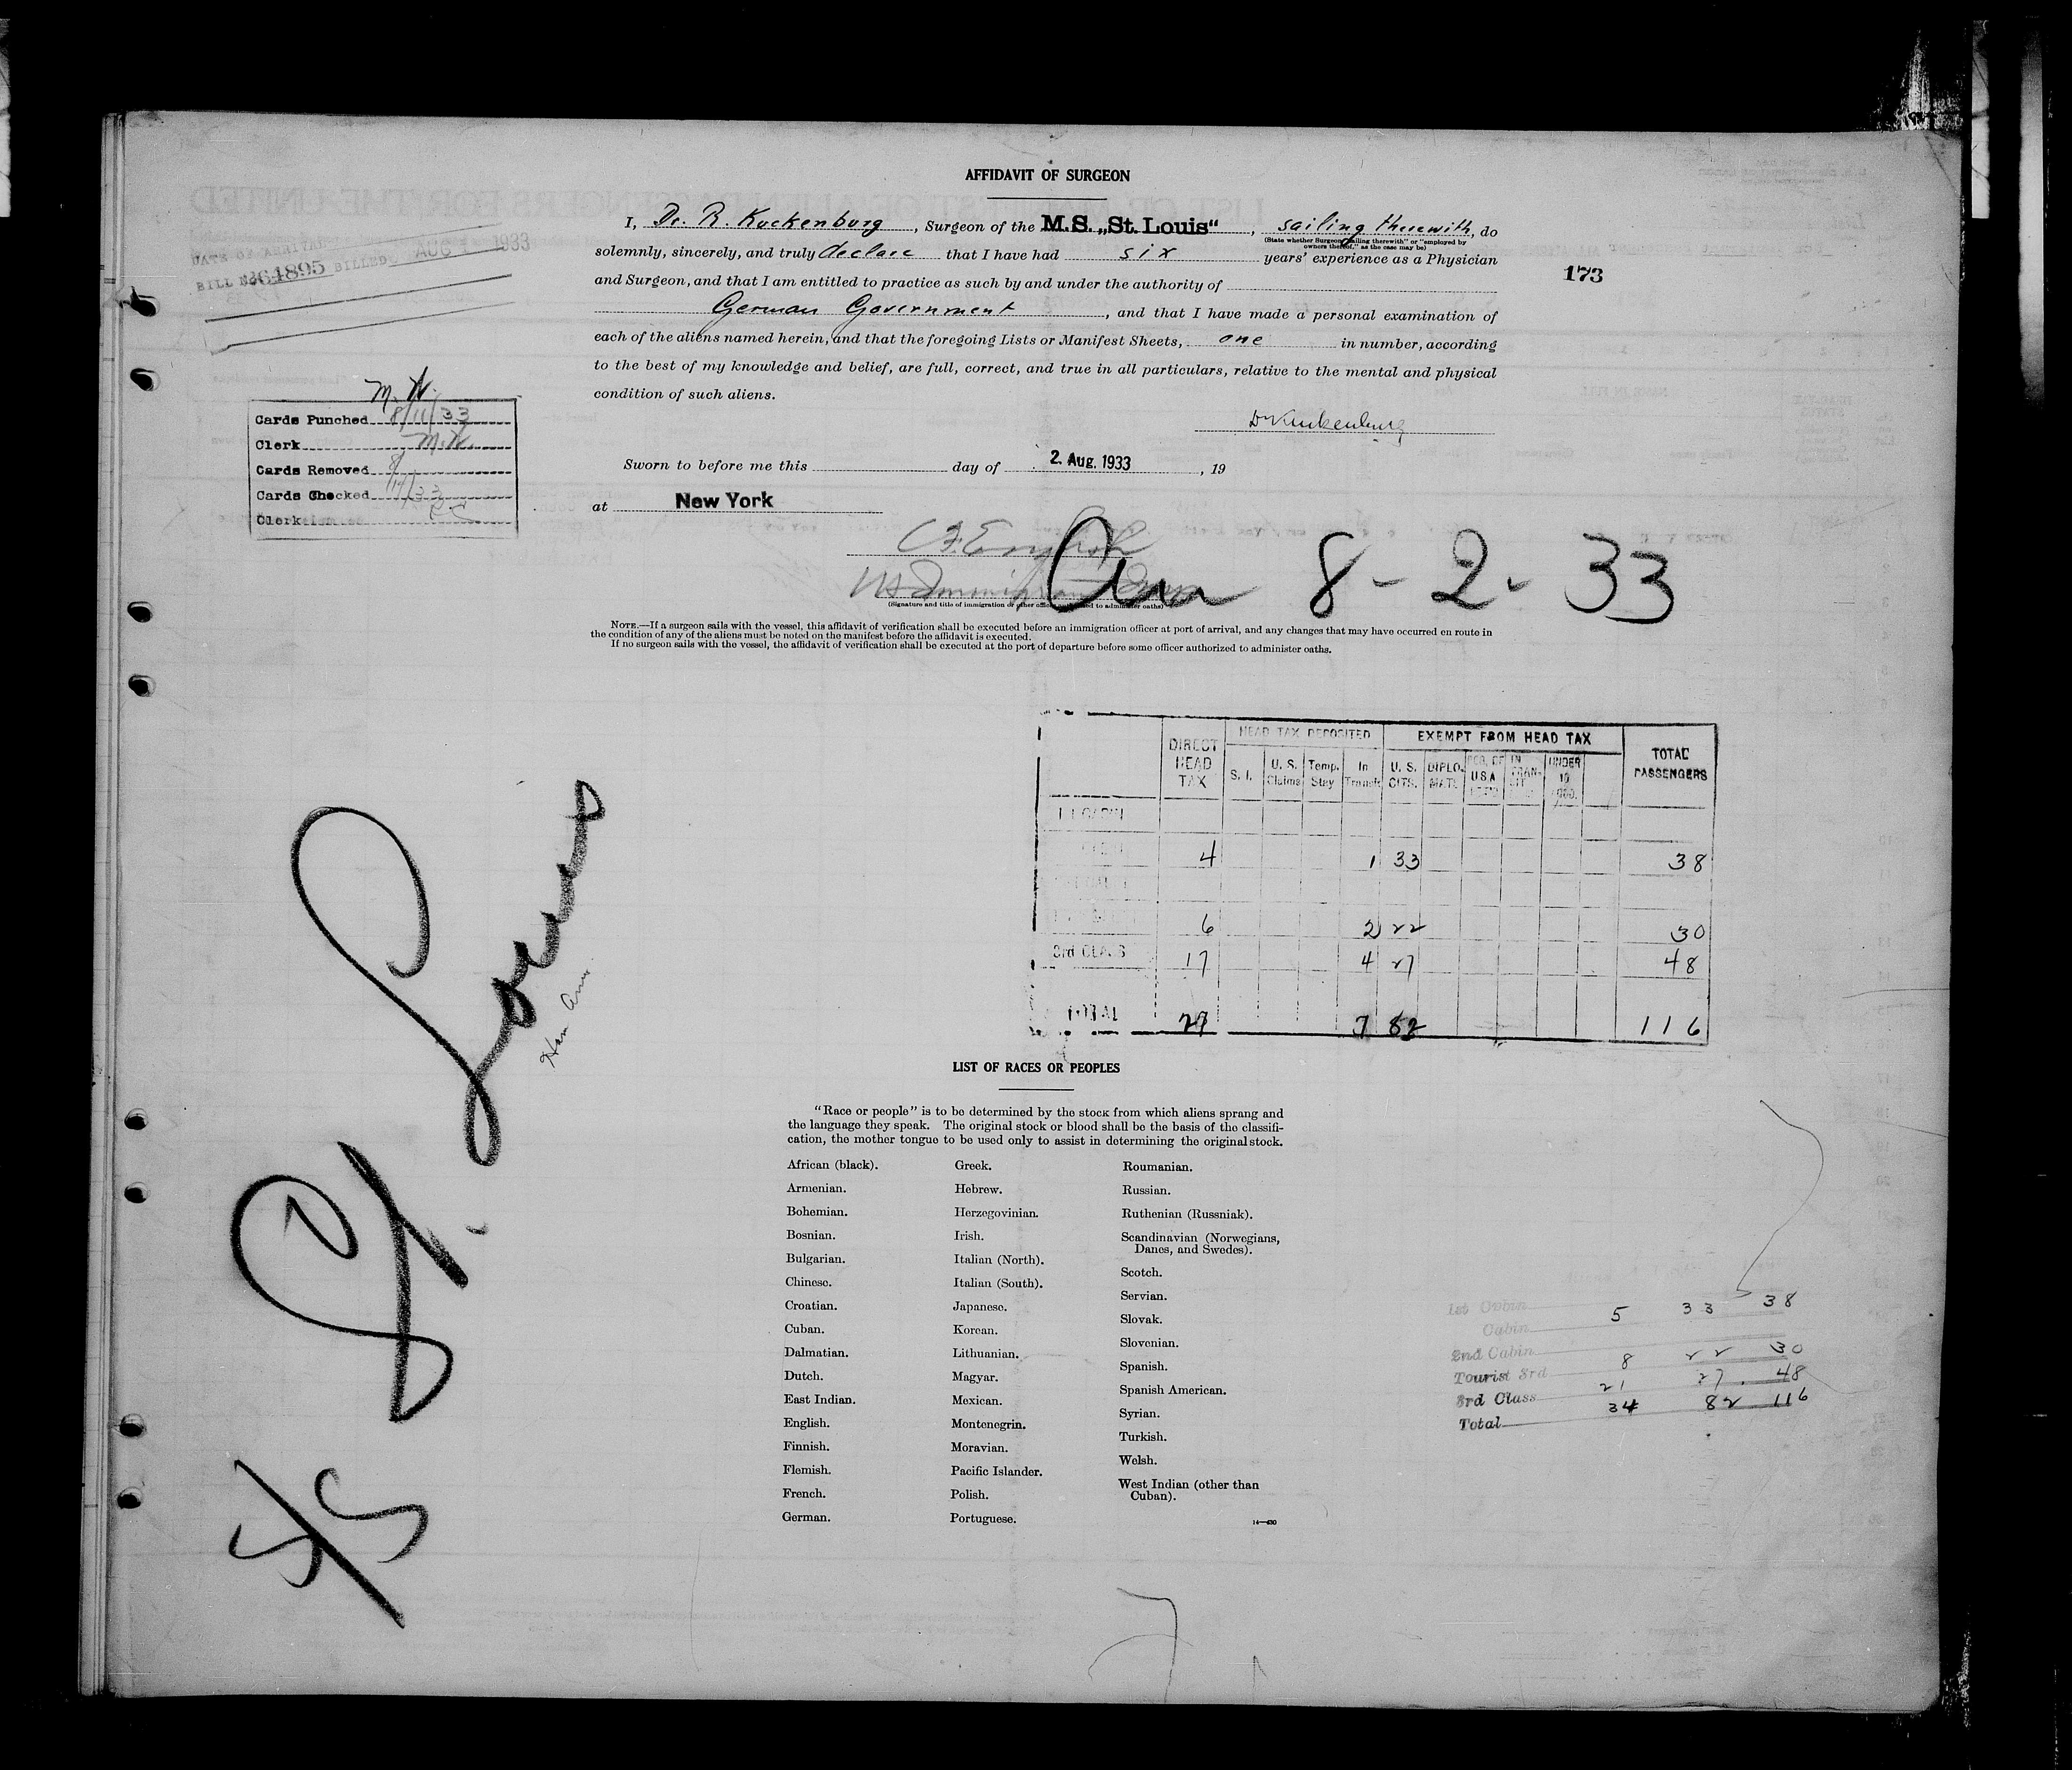 AFFIDAVIT OF SURGEON
I, Dr. R. Kuckenburg, Surgeon of the M.S. „St. Louis“, sailing therewith, do
(State whether Surgeon "sailing therewith" or "employed by
owners thereof," as the case may be)
solemnly, sincerely, and truly declare that I have had six years' experience as a Physician
and Surgeon, and that I am entitled to practice as such by and under the authority of
German Government, and that I have made a personal examination of
each of the aliens named herein, and that the foregoing Lists or Manifest Sheets, one in number, according
to the best of my knowledge and belief, are full, correct, and true in all particulars, relative to the mental and physical
condition of such aliens.
Sworn to before me this day of 2. Aug. 1933, 19
at New York
(Signature and title of immigration or other officer to administer oaths)
8-2-33
NOTE.—If a surgeon sails with the vessel, this affidavit of verification shall be executed before an immigration officer at port of arrival, and any changes that may have occurred en route in
the condition of any of the aliens must be noted on the manifest before the affidavit is executed.
If no surgeon sails with the vessel, the affidavit of verification shall be executed at the port of departure before some officer authorized to administer oaths.
173
DATE OF ARRIVAL AUG 1933
BILL No. 64895 BILLED
M. N.
Cards Punched 8/11/33
Clerk M. N.
Cards Removed
Cards Checked
Clerk
S/S St. Louis
Ham Am.
DIRECT HEAD TAX
HEAD TAX DEPOSITED
EXEMPT FROM HEAD TAX
TOTAL PASSENGERS
S. I. U. S. Claims Temp. Stay In Transit U. S. CITS. DIPLO. MATS. U S A UNDER
4 1 33 38
6 2 22 30
3rd CLASS 17 4 27 48
TOTAL 27 7 82 116
LIST OF RACES OR PEOPLES
"Race or people" is to be determined by the stock from which aliens sprang and
the language they speak. The original stock or blood shall be the basis of the classifi-
cation, the mother tongue to be used only to assist in determining the original stock.
African (black).
Armenian.
Bohemian.
Bosnian.
Bulgarian.
Chinese.
Croatian.
Cuban.
Dalmatian.
Dutch.
East Indian.
English.
Finnish.
Flemish.
French.
German.
Greek.
Hebrew.
Herzegovinian.
Irish.
Italian (North).
Italian (South).
Japanese.
Korean.
Lithuanian.
Magyar.
Mexican.
Montenegrin.
Moravian.
Pacific Islander.
Polish.
Portuguese.
Roumanian.
Russian.
Ruthenian (Russniak).
Scandinavian (Norwegians,
Danes, and Swedes).
Scotch.
Servian.
Slovak.
Slovenian.
Spanish.
Spanish American.
Syrian.
Turkish.
Welsh.
West Indian (other than
Cuban).
14—630
1st Cabin 5 33 38
Cabin
2nd Cabin 8 22 30
Tourist 3rd 21 27 48
3rd Class 34 82 116
Total